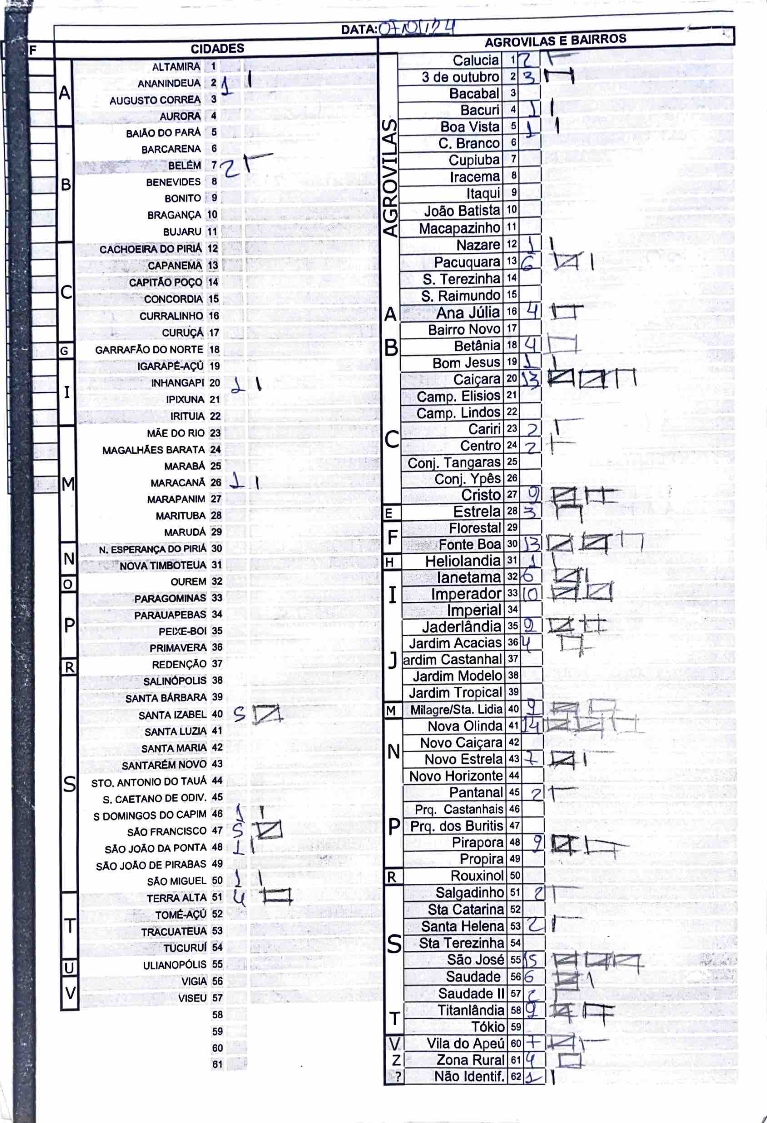 DATA: 07/01/24
F
CIDADES
A
ALTAMIRA 1
ANANINDEUA 2 1
AUGUSTO CORREA 3
AURORA 4
B
BAIÃO DO PARÁ 5
BARCARENA 6
BELÉM 7 2
BENEVIDES 8
BONITO 9
BRAGANÇA 10
BUJARU 11
C
CACHOEIRA DO PIRIÁ 12
CAPANEMA 13
CAPITÃO POÇO 14
CONCORDIA 15
CURRALINHO 16
CURUÇÁ 17
G
GARRAFÃO DO NORTE 18
I
IGARAPÉ-AÇÚ 19
INHANGAPI 20 1
IPIXUNA 21
IRITUIA 22
M
MÃE DO RIO 23
MAGALHÃES BARATA 24
MARABÁ 25
MARACANÃ 26 1
MARAPANIM 27
MARITUBA 28
MARUDÁ 29
N
N. ESPERANÇA DO PIRIÁ 30
NOVA TIMBOTEUA 31
O
OUREM 32
P
PARAGOMINAS 33
PARAUAPEBAS 34
PEIXE-BOI 35
PRIMAVERA 36
R
REDENÇÃO 37
S
SALINÓPOLIS 38
SANTA BÁRBARA 39
SANTA IZABEL 40 5
SANTA LUZIA 41
SANTA MARIA 42
SANTARÉM NOVO 43
STO. ANTONIO DO TAUÁ 44
S. CAETANO DE ODIV. 45
S DOMINGOS DO CAPIM 46 1
SÃO FRANCISCO 47 5
SÃO JOÃO DA PONTA 48 1
SÃO JOÃO DE PIRABAS 49
SÃO MIGUEL 50 1
T
TERRA ALTA 51 4
TOMÉ-AÇÚ 52
TRACUATEUA 53
TUCURUÍ 54
U
ULIANÓPOLIS 55
V
VIGIA 56
VISEU 57
58
59
60
61
AGROVILAS E BAIRROS
AGROVILAS
Calucia 1 2
3 de outubro 2 3
Bacabal 3
Bacuri 4 1
Boa Vista 5 1
C. Branco 6
Cupiuba 7
Iracema 8
Itaqui 9
João Batista 10
Macapazinho 11
Nazare 12 1
Pacuquara 13 6
S. Terezinha 14
S. Raimundo 15
A
Ana Júlia 16 4
B
Bairro Novo 17
Betânia 18 4
Bom Jesus 19 1
C
Caiçara 20 13
Camp. Elisios 21
Camp. Lindos 22
Cariri 23 2
Centro 24 2
Conj. Tangaras 25
Conj. Ypês 26
Cristo 27 9
E
Estrela 28 3
F
Florestal 29
Fonte Boa 30 13
H
Heliolandia 31 1
I
Ianetama 32 6
Imperador 33 10
Imperial 34
J
Jaderlândia 35 9
Jardim Acacias 36 4
Jardim Castanhal 37
Jardim Modelo 38
Jardim Tropical 39
M
Milagre/Sta. Lidia 40 9
N
Nova Olinda 41 14
Novo Caiçara 42
Novo Estrela 43 7
Novo Horizonte 44
P
Pantanal 45 2
Prq. Castanhais 46
Prq. dos Buritis 47
Pirapora 48 9
Propira 49
R
Rouxinol 50
S
Salgadinho 51 2
Sta Catarina 52
Santa Helena 53 2
Sta Terezinha 54
São José 55 15
Saudade 56 6
Saudade II 57 2
T
Titanlândia 58 9
Tókio 59
V
Vila do Apeú 60 7
Z
Zona Rural 61 4
?
Não Identif. 62 1